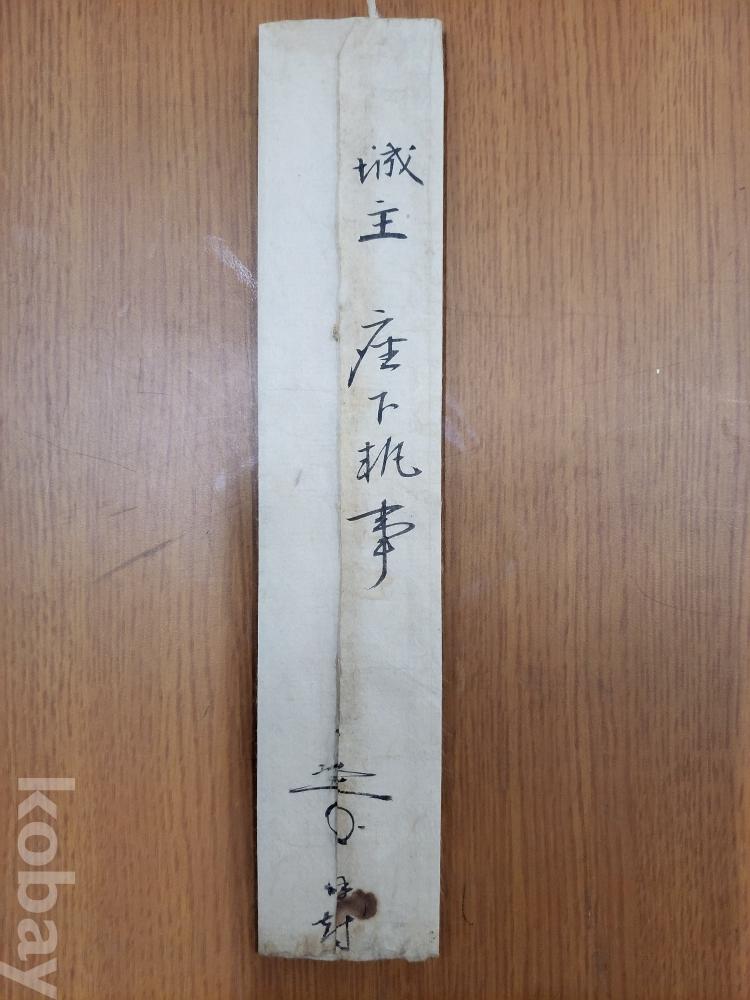 城主 座下執事
封
kobay